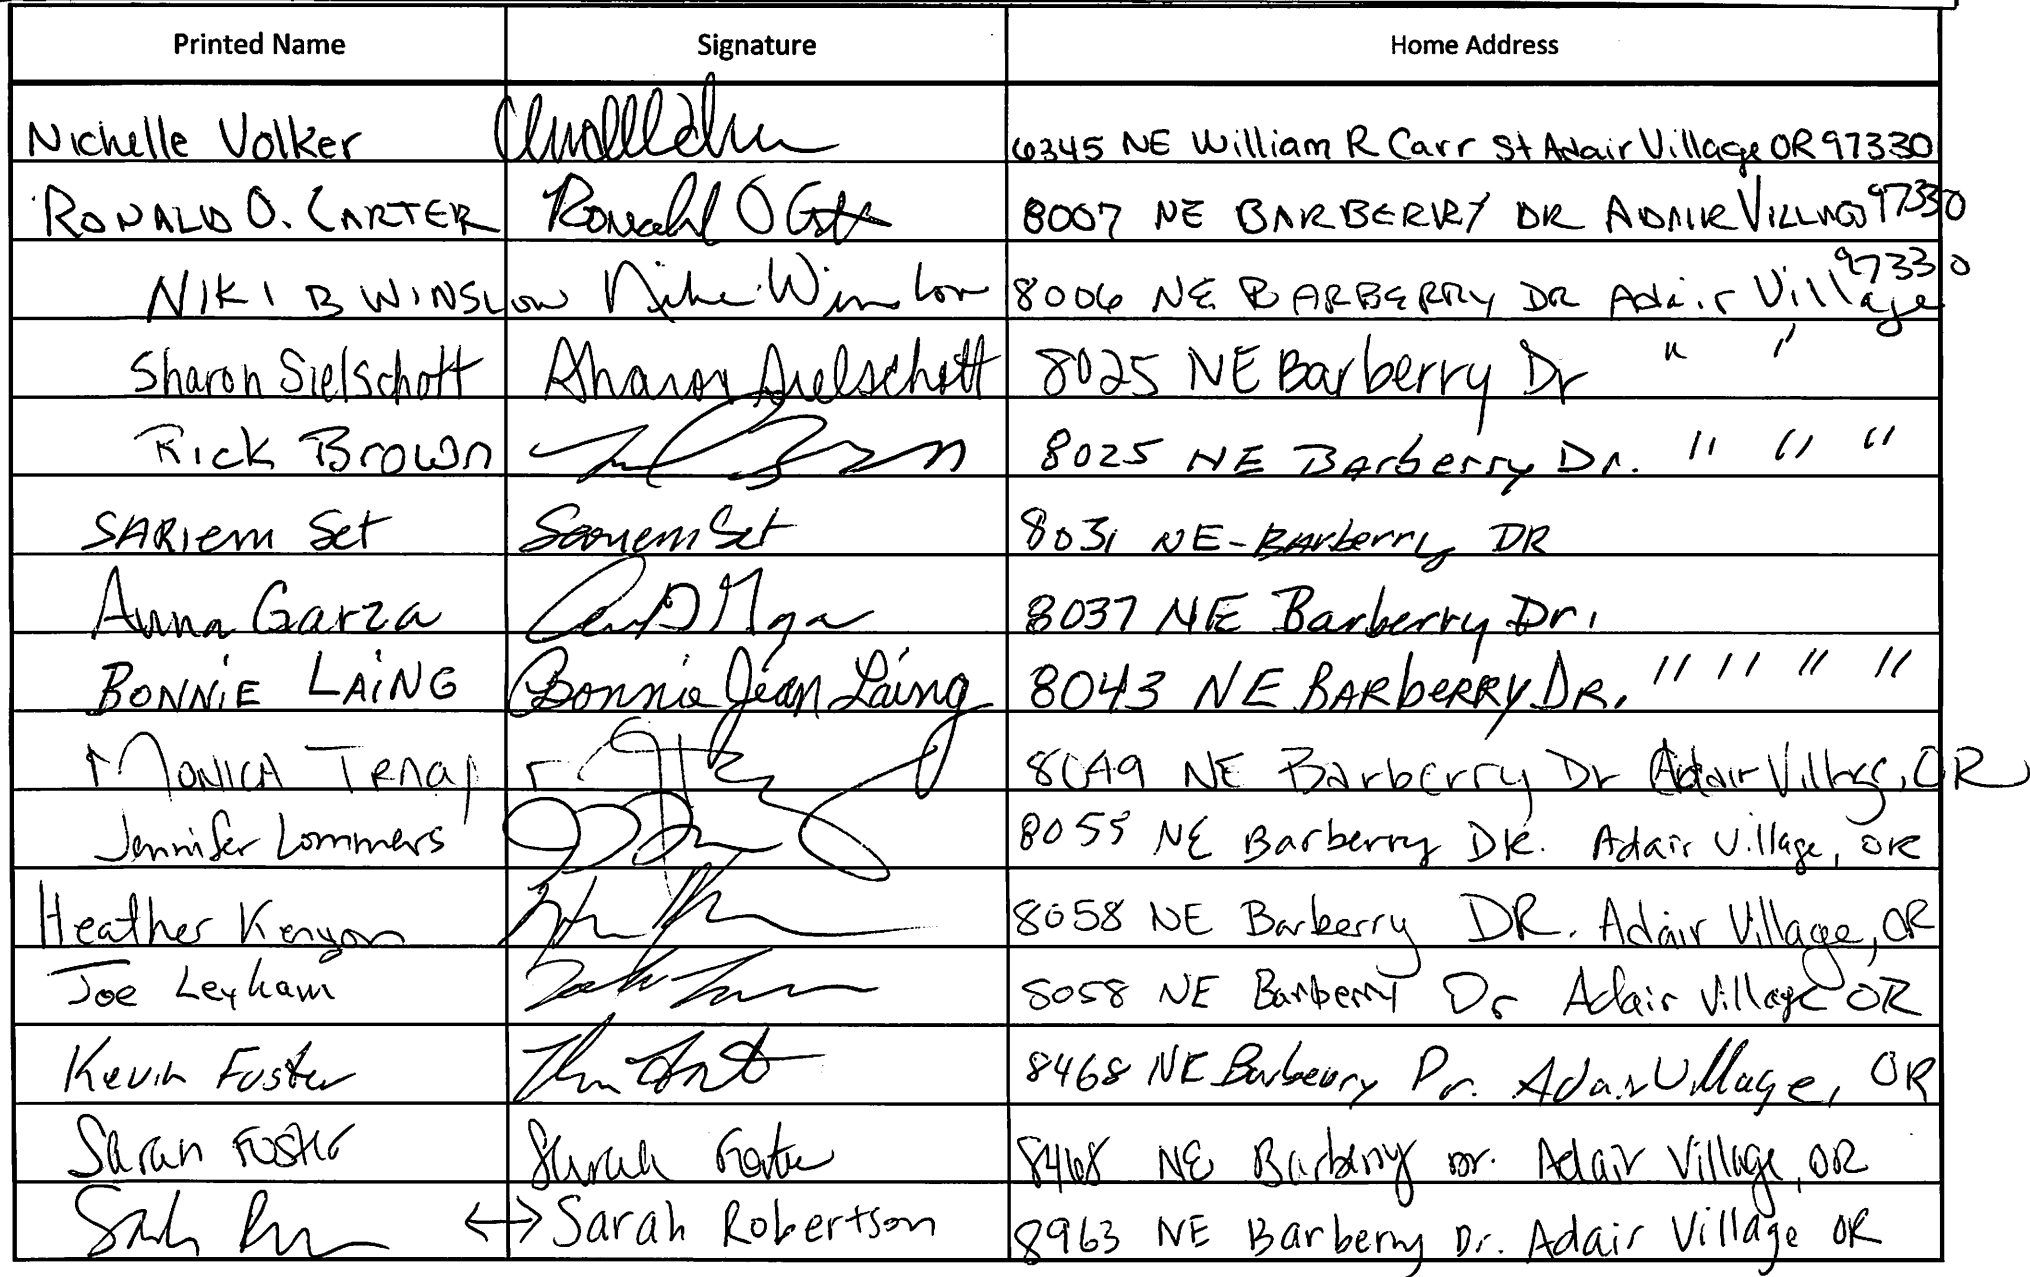 Printed Name Signature Home Address
Nichelle Volker 6345 NE William R Carr St Adair Village OR 97330
RONALD O. CARTER Ronald O 8007 NE BARBERRY DR ADAIR VILLAGE 97330
NIKI B WINSLOW Winslow 8006 NE BARBERRY DR Adair Village 97330
Sharon Sielschott Sharon Sielschott 8025 NE Barberry Dr " "
Rick Brown 8025 NE Barberry Dr. " " "
SARIEM Set Sariem Set 8031 NE-Barberry DR
Anna Garza 8037 NE Barberry Dr.
BONNIE LAING Bonnie Jean Laing 8043 NE BARBERRY DR. " " " "
MONICA 8049 NE Barberry Dr Adair Village, OR
Jennifer Lommers 8055 NE Barberry DR. Adair Village, OR
Heather Kenyon 8058 NE Barberry DR. Adair Village, OR
Joe Leyham 8058 NE Barberry Dr Adair Village OR
Kevin Foster 8468 NE Barberry Dr. Adair Village, OR
Sarah Foster Sarah Foster 8468 NE Barberry Dr. Adair Village, OR
↔ Sarah Robertson 8963 NE Barberry Dr. Adair Village OR